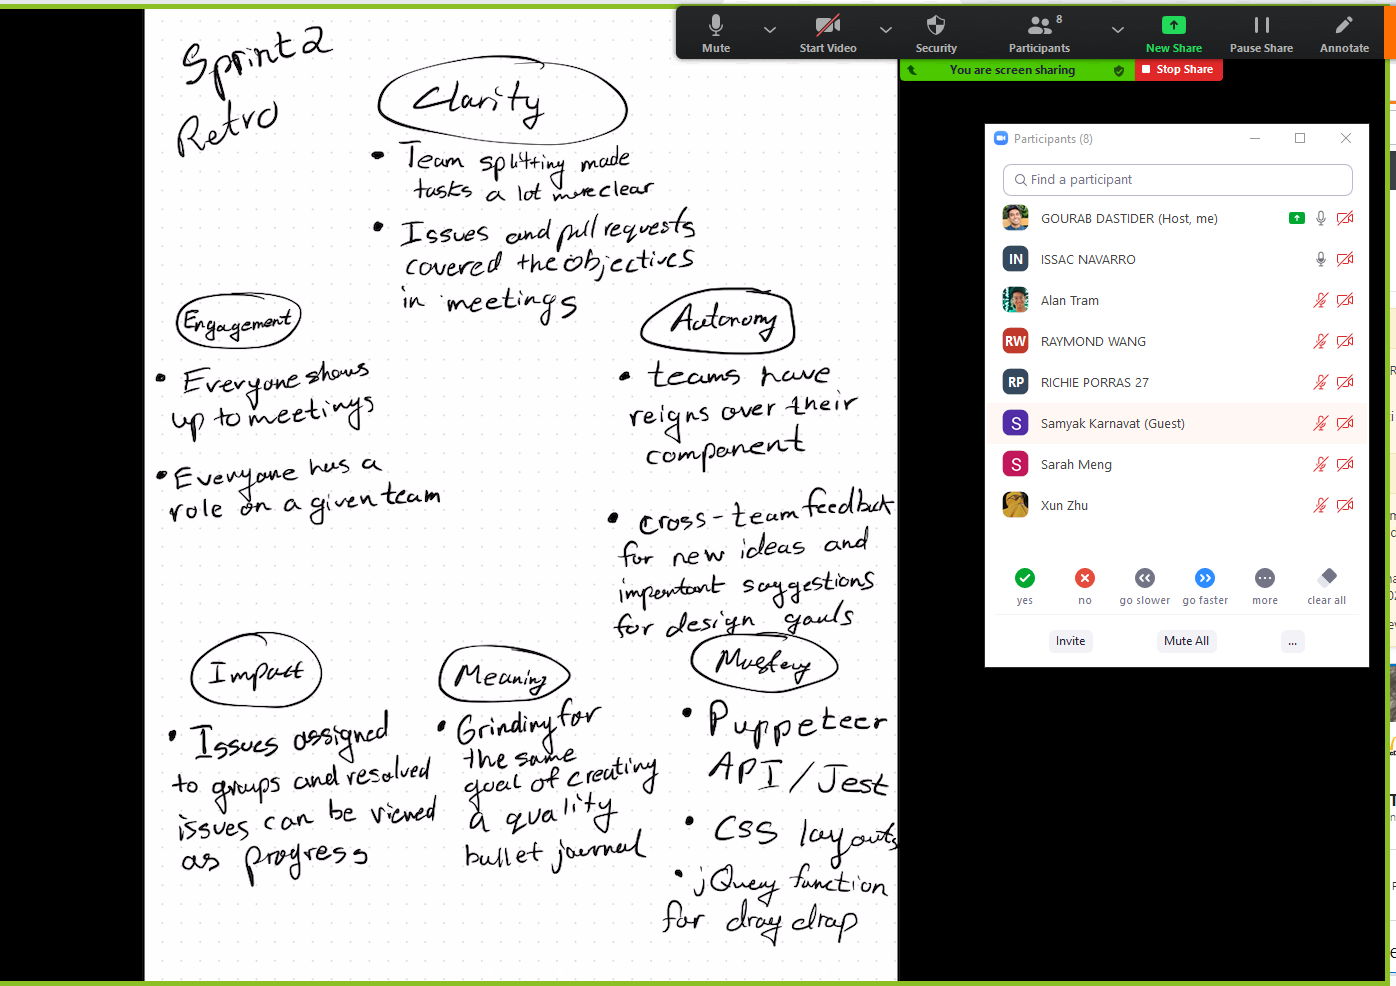 Sprint 2
Retro
Clarity
• Team splitting made
tasks a lot more clear
• Issues and pull requests
covered the objectives
in meetings
Engagement
• Everyone shows
up to meetings
• Everyone has a
role on a given team
Autonomy
• teams have
reigns over their
component
• cross-team feedback
for new ideas and
important suggestions
for design goals
Impact
• Issues assigned
to groups and resolved
issues can be viewed
as progress
Meaning
• Grinding for
the same
goal of creating
a quality
bullet journal
Mastery
• Puppeteer
API/Jest
• CSS layouts
• jQuery function
for drag drop
Mute
Start Video
Security
8
Participants
New Share
Pause Share
Annotate
You are screen sharing
Stop Share
Participants (8)
Find a participant
GOURAB DASTIDER (Host, me)
IN ISSAC NAVARRO
Alan Tram
RW RAYMOND WANG
RP RICHIE PORRAS 27
S Samyak Karnavat (Guest)
S Sarah Meng
Xun Zhu
yes
no
go slower
go faster
more
clear all
Invite
Mute All
...